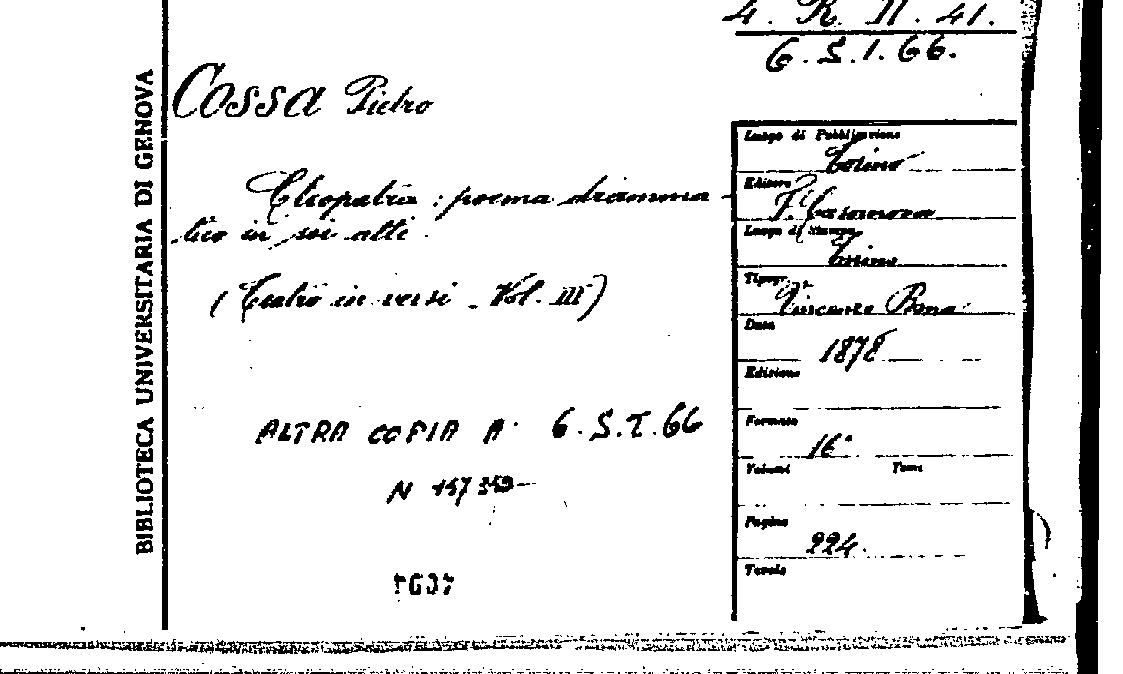 4. R. II. 41.
6.S.I.66.
BIBLIOTECA UNIVERSITARIA DI GENOVA
COSSA Pietro
Cleopatra : poema dramma-
tico in sei atti.
(Teatro in versi - Vol. III)
ALTRA COPIA A. 6.S.I.66
N
Luogo di Pubblicazione
Torino
Editore
F. Casanova
Luogo di Stampa
Torino
Tipogr.
Vincenzo Bona
Data
1878
Edizione
Formato
16°
Volumi Tomi
Pagine
224.
Tavole